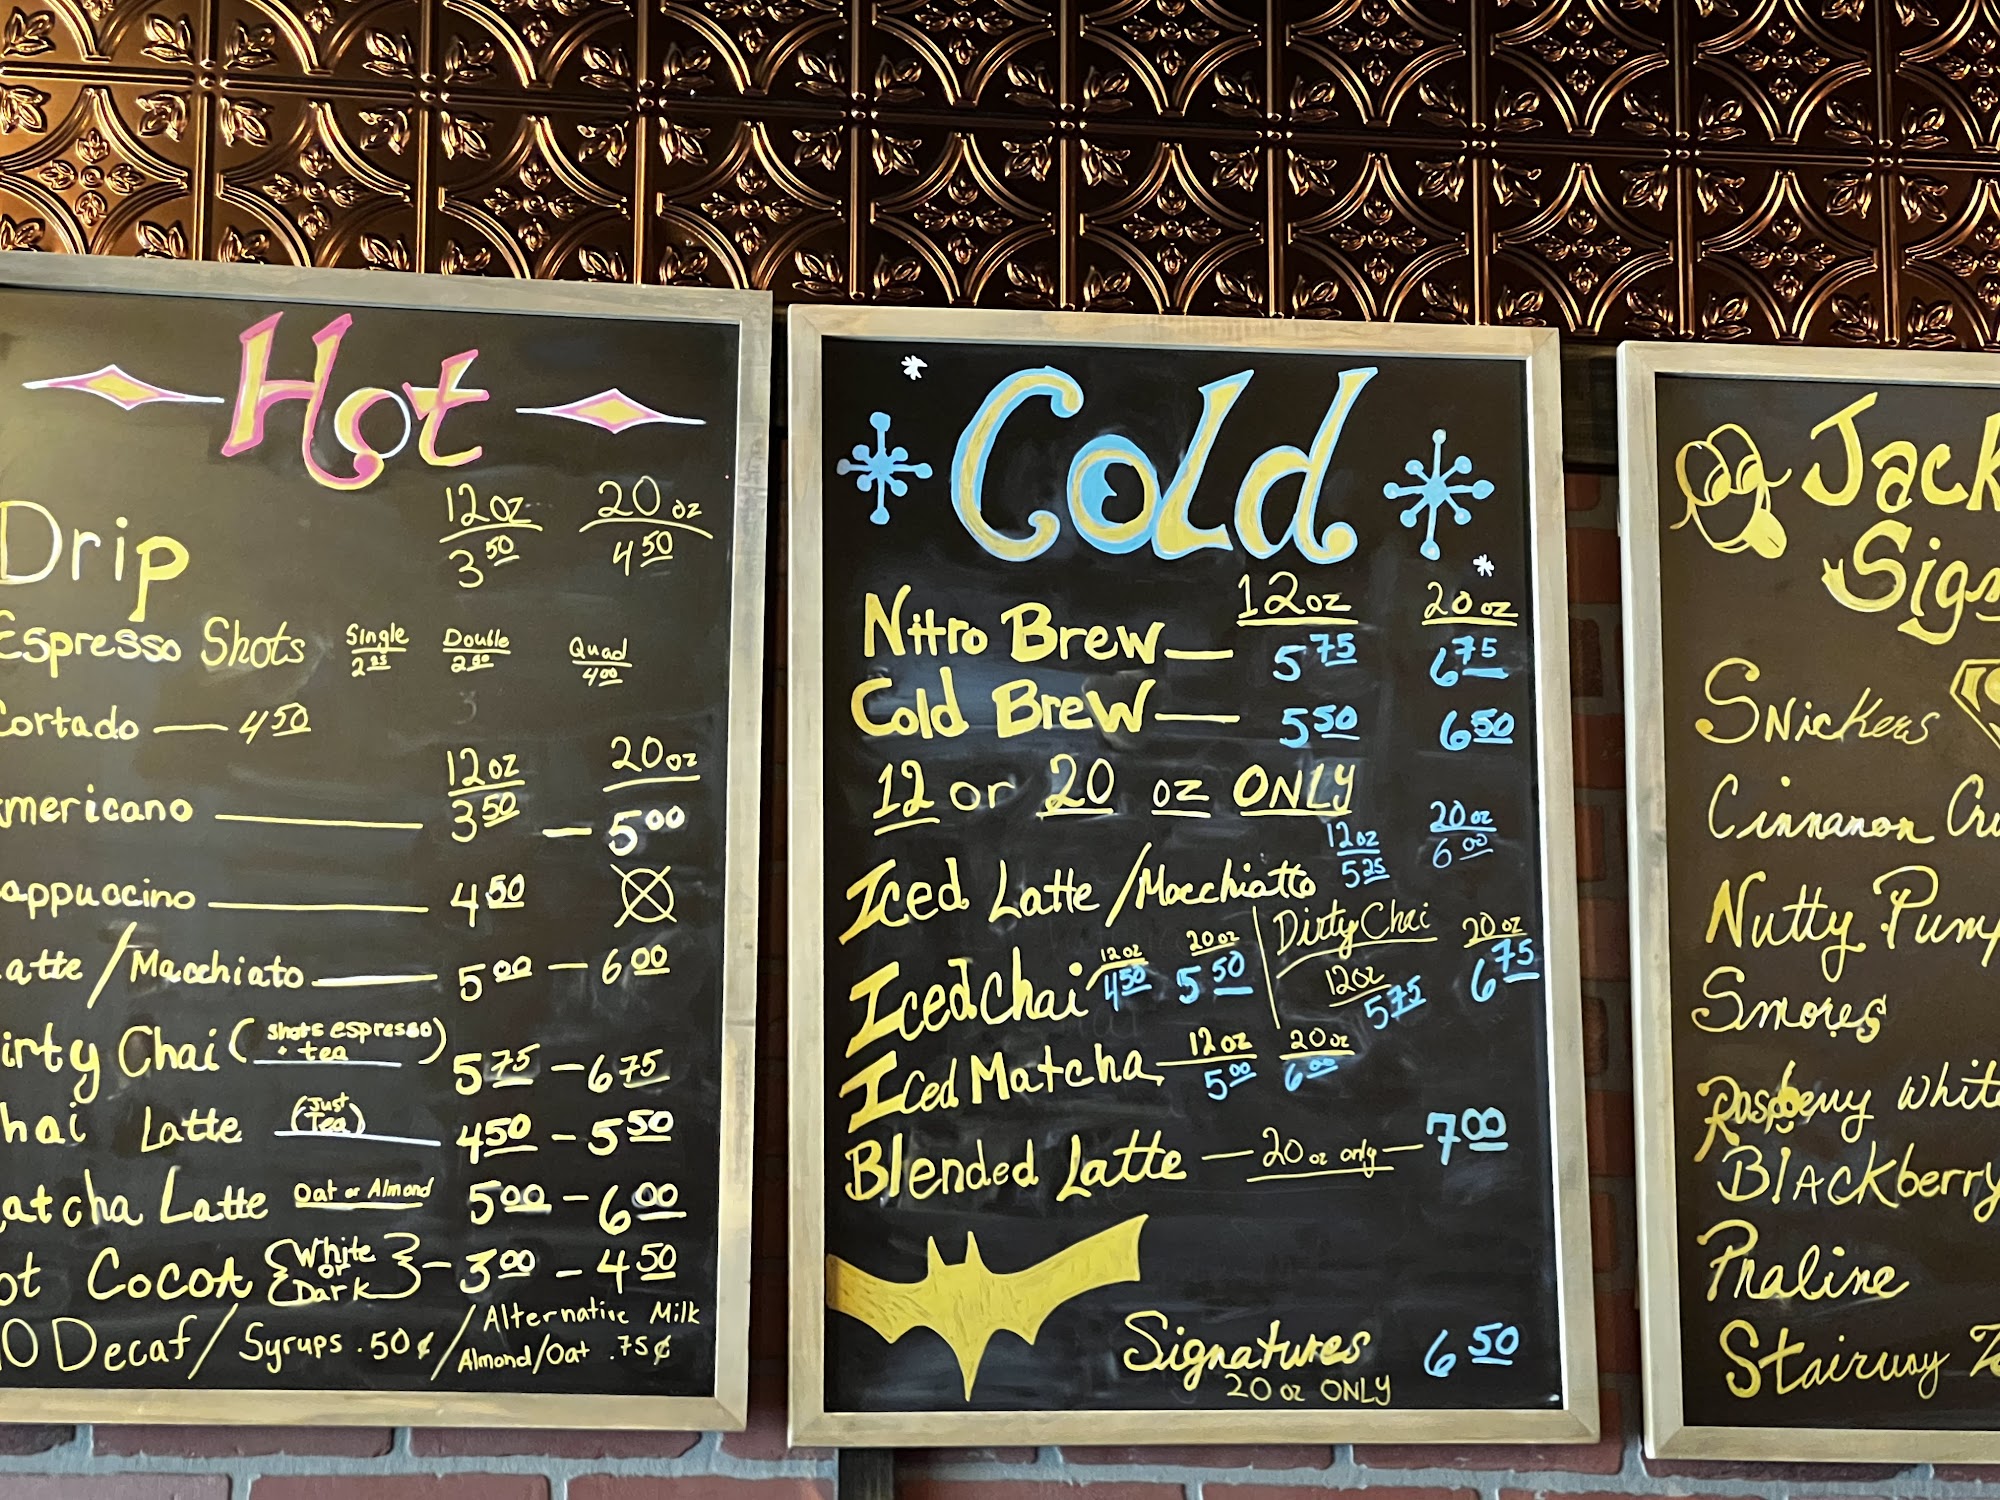 Hot
12oz 20oz
Drip 3 50 4 50
Espresso Shots Single Double 2 50 Quad 4 00
Cortado — 4 50
12oz 20oz
mericano — 3 50 — 5 00
appuccino — 4 50
atte / Macchiato — 5 00 — 6 00
irty Chai ( shots espresso + tea ) 5 75 — 6 75
hai Latte (Just Tea) 4 50 — 5 50
atcha Latte Oat or Almond 5 00 — 6 00
ot Cocoa {White or Dark} — 3 00 — 4 50
Decaf / Syrups .50¢ / Alternative Milk
Almond/Oat .75¢
Cold
12oz 20oz
Nitro Brew — 5 75 6 75
Cold Brew — 5 50 6 50
12 or 20 oz ONLY
12oz 20oz
Iced Latte / Macchiatto 5 25 6 00
Iced Chai 12oz 4 50 20oz 5 50 | Dirty Chai 12oz 5 75 20oz 6 75
Iced Matcha — 12oz 5 00 20oz 6 00
Blended Latte — 20oz only — 7 00
Signatures 6 50
20oz ONLY
Jack
Sig
Snickers
Cinnamon
Nutty Pump
Smores
Raspberry White
Blackberry
Praline
Stairway